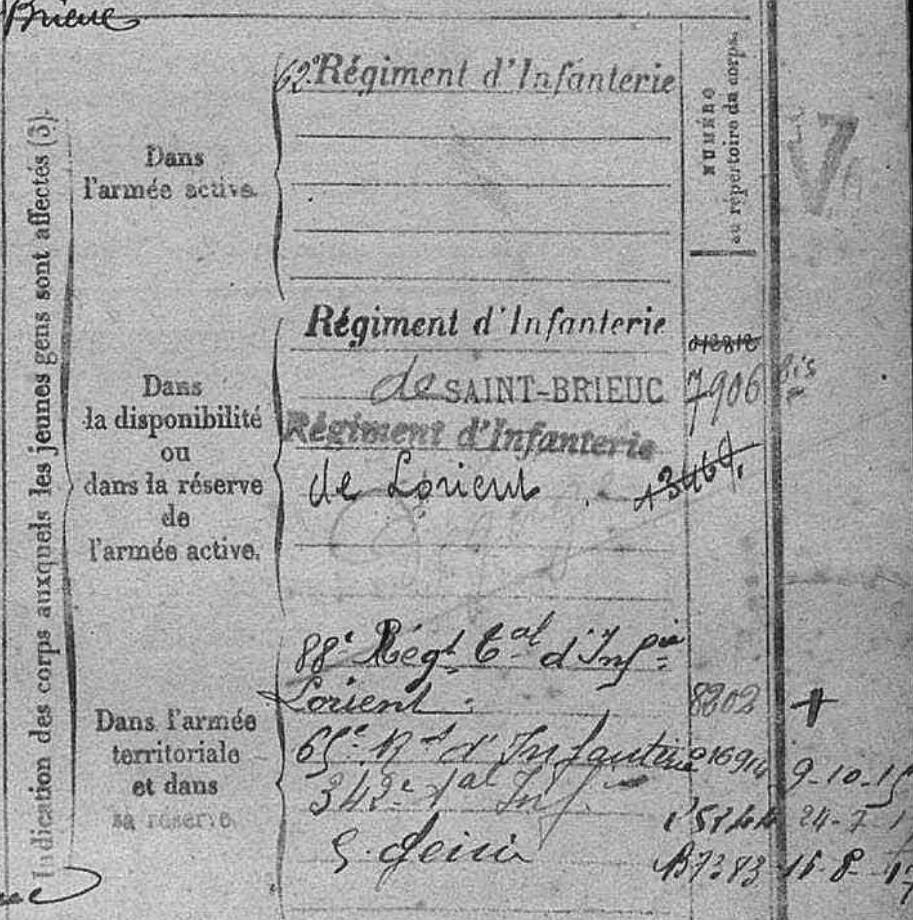 Brieuc
Indication des corps auxquels les jeunes gens sont affectés (5).
NUMÉRO
au répertoire du corps.
Dans
l'armée active.
62e Régiment d'Infanterie
Dans
la disponibilité
ou
dans la réserve
de
l'armée active.
Régiment d'Infanterie
de SAINT-BRIEUC 7906 bis
Régiment d'Infanterie
de Lorient
Dans l'armée
territoriale
et dans
sa réserve
88e Régt Tal d'Infie
Lorient 8202 +
65e Rt d'Infanterie 9-10-15
342e Tal Inf. 24-7-1
S. 15-8-17